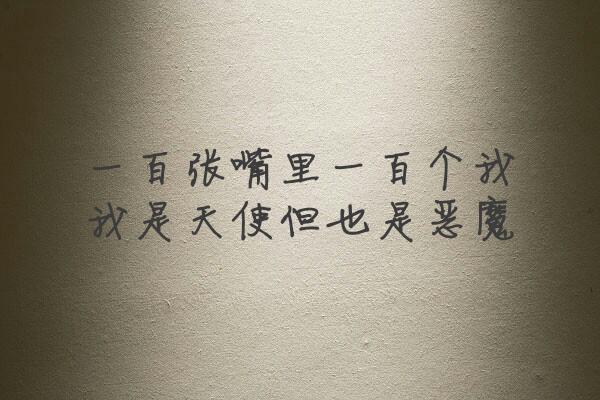 一百张嘴里一百个我
我是天使但也是恶魔